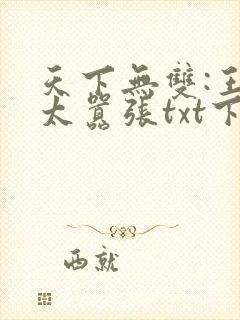 天下無雙:王
太囂張txt下
西就